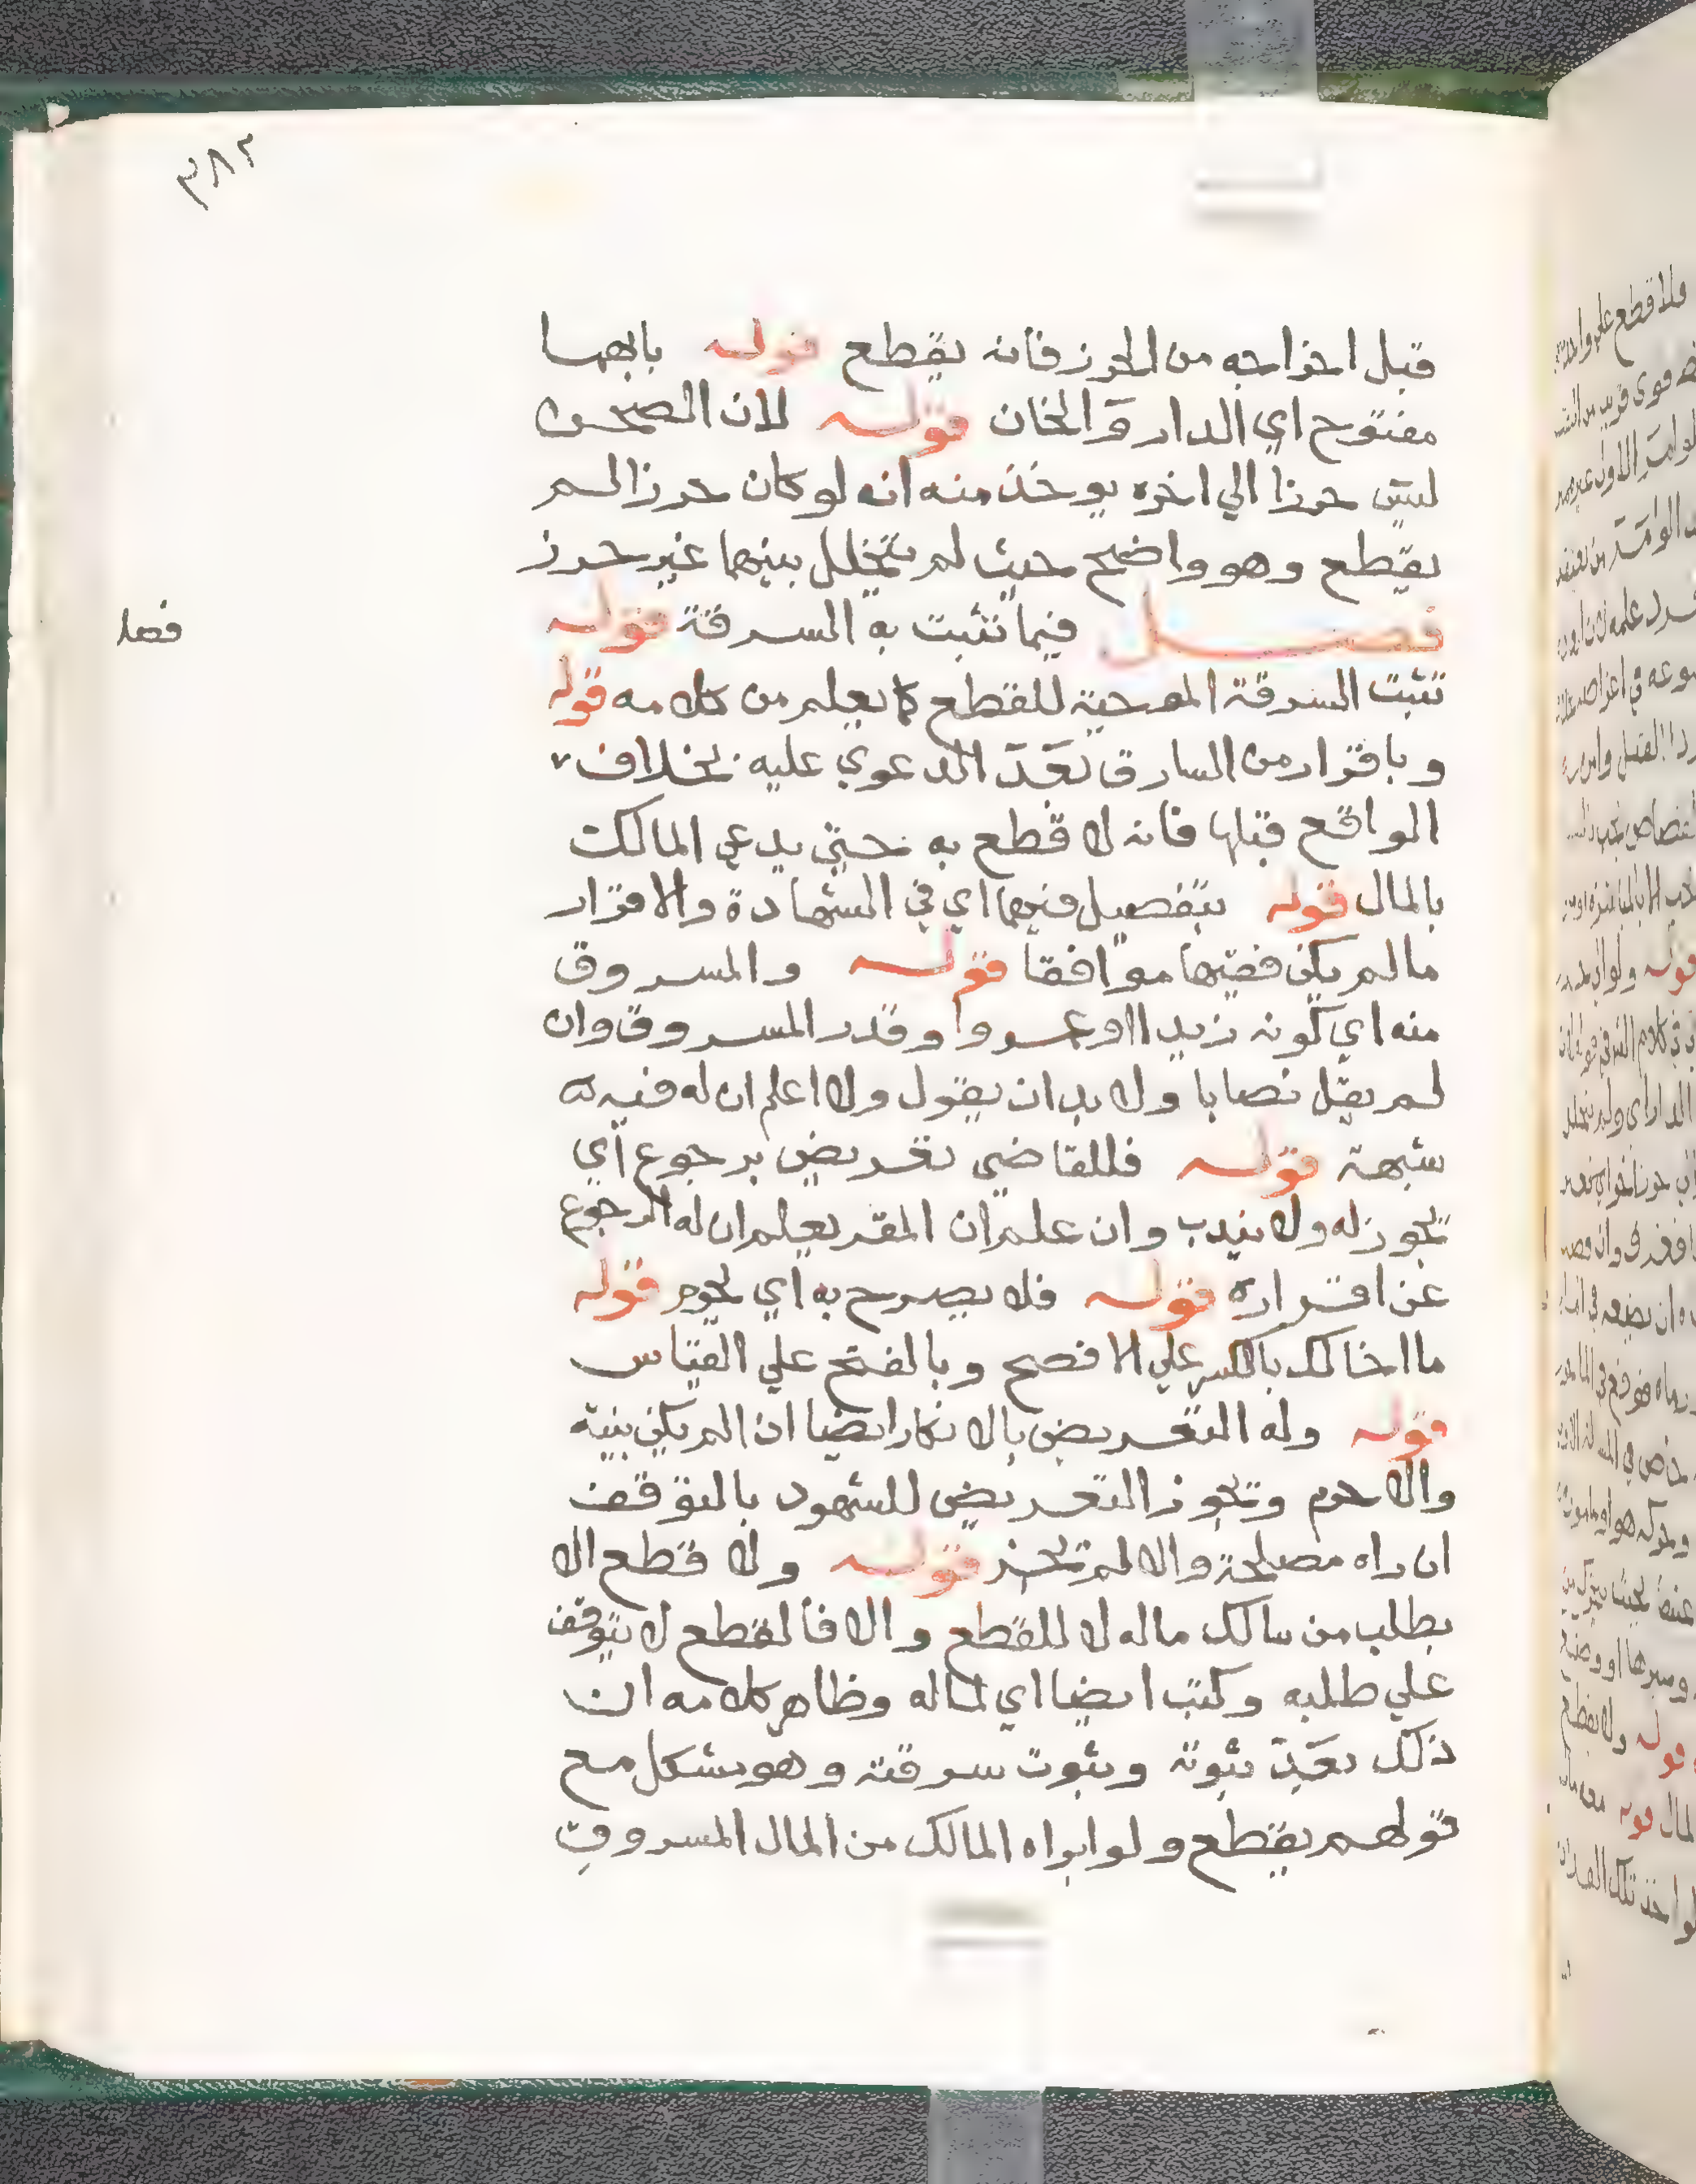 ٣٨٢
قبل اخراجه من الحرز فانه يقطع قوله بابهما
مفتوح اي الدار والخان قوله لان الصحن
ليس حرزا الي اخره يوخذ منه انه لو كان حرزا لم
يقطع وهو واضح حيث لم يتخلل بينهما غير حرز
فصل فيما تثبت به السرقة قوله
تثبت السرقة الموجبة للقطع كما يعلم من كلامه قوله
وباقرار من السارق بعد الدعوي عليه بخلاف
الواقع قبلها فانه لا قطع به حتي يدعي المالك
بالمال قوله بتفصيل فيهما اي في الشهادة والاقرار
ما لم يكن فقيها موافقا قوله والمسروق
منه اي كونه زيدا او عمروا وقدر المسروق وان
لم يقل نصابا ولا بد ان يقول ولا اعلم ان له فيه
شبهة قوله فللقاضي تعريض برجوع اي
يجوز له ولا يندب وان علم ان المقر يعلم ان له الرجوع
عن اقراره قوله فلا يصرح به اي يحرم قوله
ما اخالك بالكسر علي الافصح وبالفتح علي القياس
قوله وله التعريض بالانكار ايضا ان لم يكن بينة
والا حرم ويجوز التعريض للشهود بالتوقف
ان راه مصلحة والا لم يجز قوله ولا قطع الا
بطلب من مالك ماله لا للقطع والا فالقطع لا يتوقف
علي طلبه وكتب ايضا اي لماله وظاهر كلامه ان
ذلك بعد ثبوته وثبوت سرقته وهو مشكل مع
قولهم يقطع ولو ابراه المالك من المال المسروق
فصل